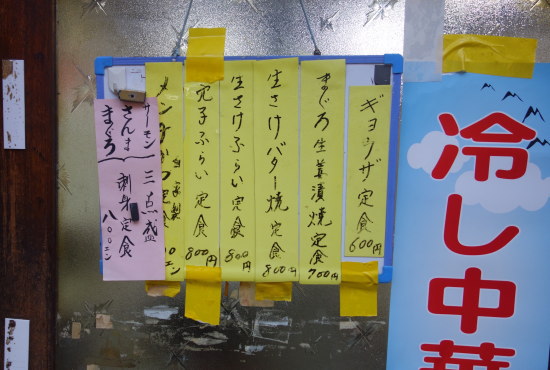 ギョウザ定食600円
まぐろ生姜漬焼定食700円
生さけバター焼定食800円
生さけふらい定食800円
穴子ふらい定食800円
メンチかつ定食
自家製
サーモン
さんま
まぐろ
三点盛
刺身定食
八〇〇エン
冷し中華